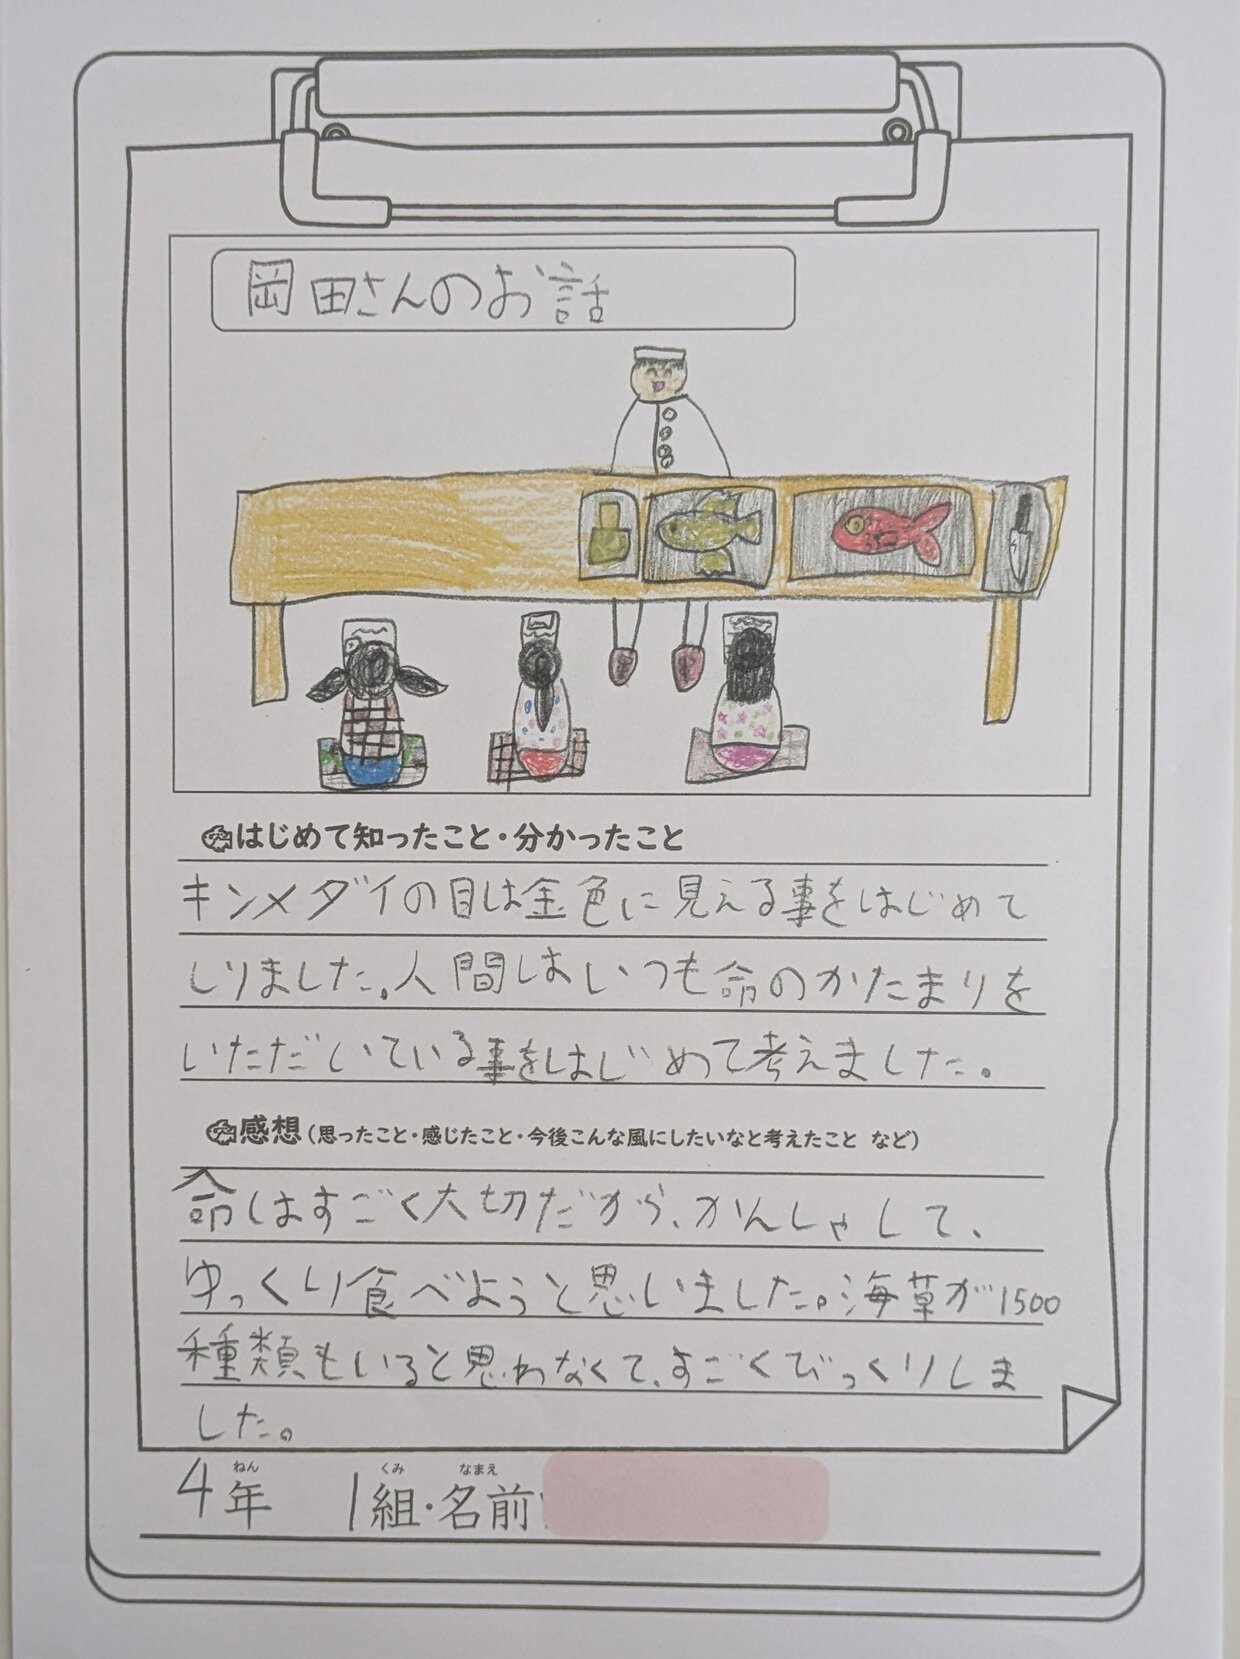 岡田さんのお話
はじめて知ったこと・分かったこと
キンメダイの目は金色に見える事をはじめて
しりました。人間はいつも命のかたまりを
いただいている事をはじめて考えました。
感想(思ったこと・感じたこと・今後こんな風にしたいなと考えたこと など)
命はすごく大切だから、かんしゃして、
ゆっくり食べようと思いました。海草が1500
種類もいると思わなくて、すごくびっくりしま
した。
ねん くみ なまえ
4年 1組・名前